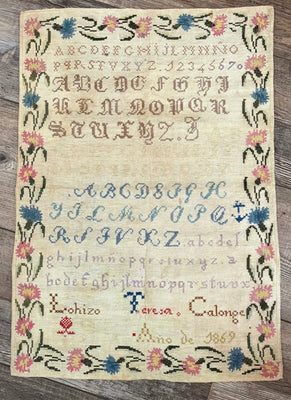 ABCDEFGHIJLMNÑO
PQRSTVXYZ. 1234567
ABCDEFGHI
KLMNOPQR
STUXYZ.J
ABCDEFGH
YJLMNOPQ
RSTVXZ.abcdef
ghijlmnopqrstuvxyz.a
bcdefghijlmnopqrstuvx
Lo hizo Teresa Calonge
Año de 1869